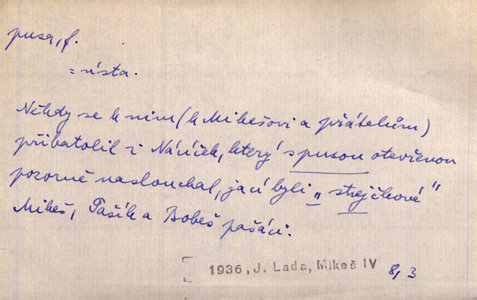 pusa, f.
= ústa.
Někdy se k nim (k Mikešovi a přátelům)
přibatolil i Nácíček, který s pusou otevřenou
pozorně naslouchal, jací byli „strejčkové"
Mikeš, Pašík a Bobeš pašáci.
1936, J. Lada, Mikeš IV 8, 3